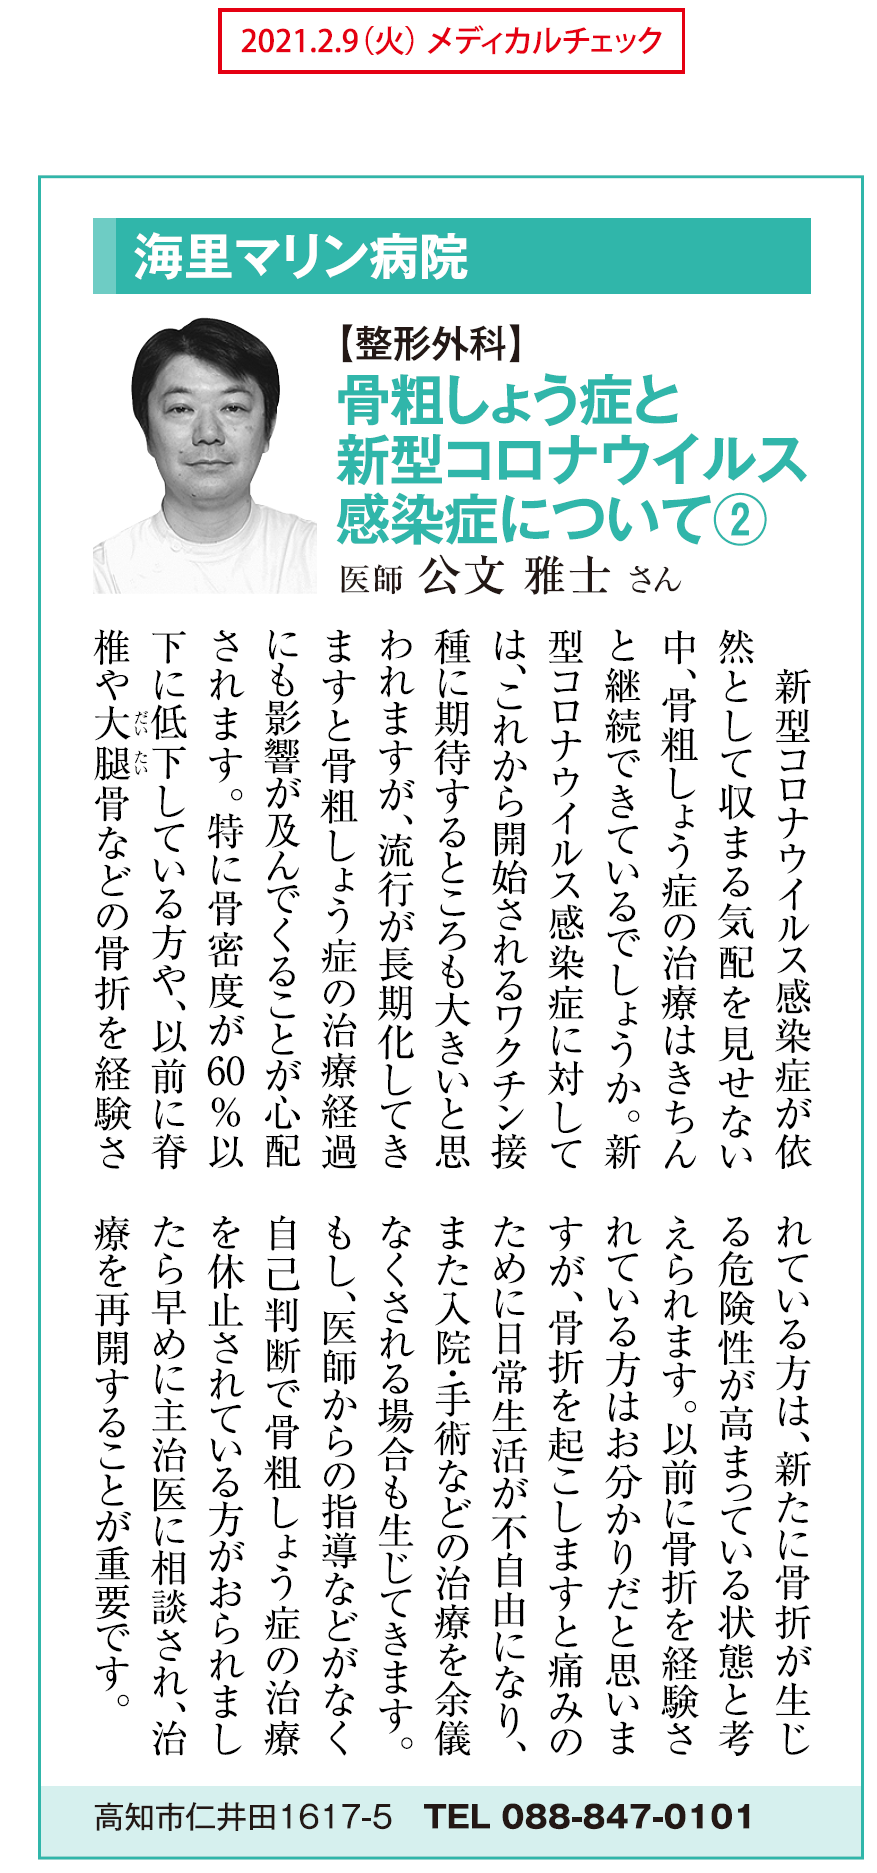 2021.2.9（火） メディカルチェック
海里マリン病院
【整形外科】
骨粗しょう症と
新型コロナウイルス
感染症について②
医師 公文 雅士 さん
新型コロナウイルス感染症が依
然として収まる気配を見せない
中、骨粗しょう症の治療はきちん
と継続できているでしょうか。新
型コロナウイルス感染症に対して
は、これから開始されるワクチン接
種に期待するところも大きいと思
われますが、流行が長期化してき
ますと骨粗しょう症の治療経過
にも影響が及んでくることが心配
されます。特に骨密度が60％以
下に低下している方や、以前に脊
椎や大腿骨などの骨折を経験さ
だい たい
れている方は、新たに骨折が生じ
る危険性が高まっている状態と考
えられます。以前に骨折を経験さ
れている方はお分かりだと思いま
すが、骨折を起こしますと痛みの
ために日常生活が不自由になり、
また入院・手術などの治療を余儀
なくされる場合も生じてきます。
もし、医師からの指導などがなく
自己判断で骨粗しょう症の治療
を休止されている方がおられまし
たら早めに主治医に相談され、治
療を再開することが重要です。
高知市仁井田1617-5 TEL 088-847-0101